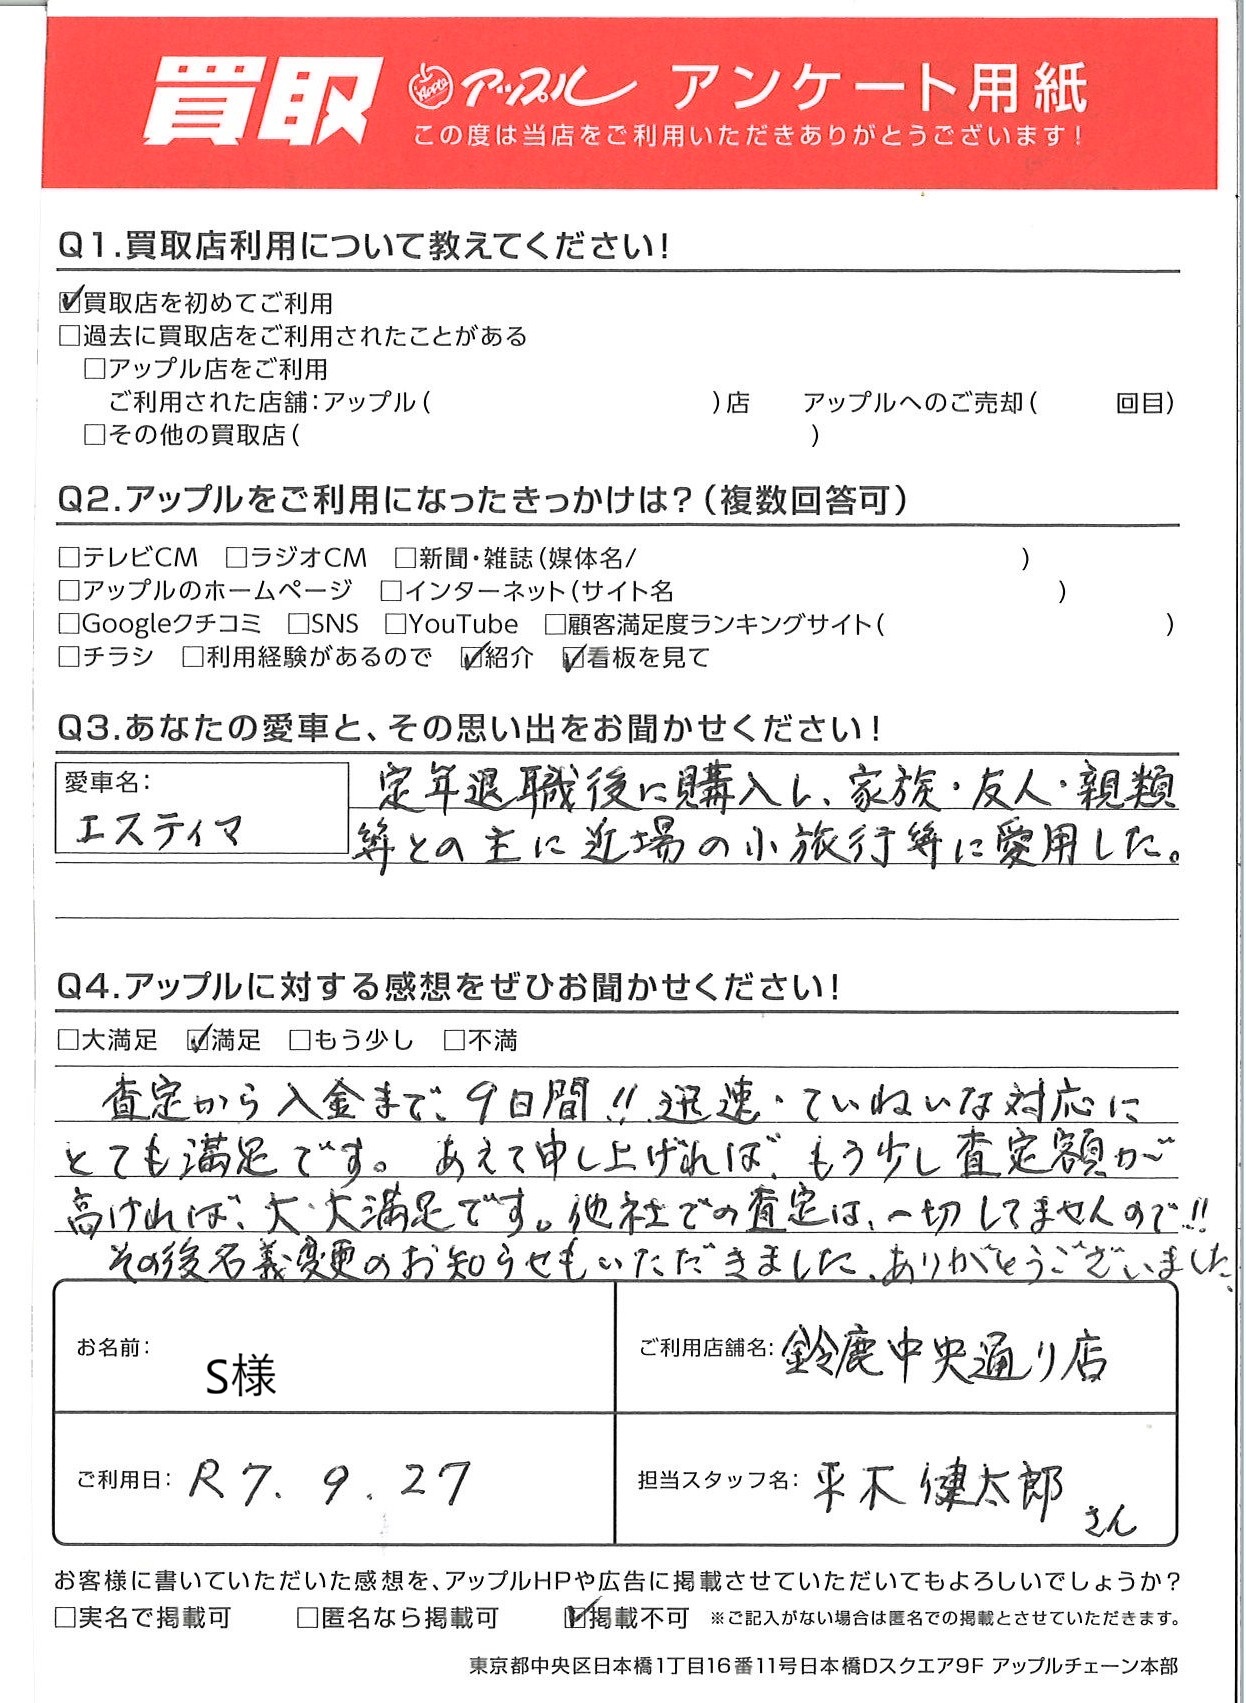 買取 アップル アンケート用紙
この度は当店をご利用いただきありがとうございます!
Q1.買取店利用について教えてください!
☑買取店を初めてご利用
□過去に買取店をご利用されたことがある
□アップル店をご利用
ご利用された店舗:アップル( )店 アップルへのご売却( 回目)
□その他の買取店( )
Q2.アップルをご利用になったきっかけは?(複数回答可)
□テレビCM □ラジオCM □新聞・雑誌(媒体名/ )
□アップルのホームページ □インターネット(サイト名 )
□Googleクチコミ □SNS □YouTube □顧客満足度ランキングサイト( )
□チラシ □利用経験があるので ☑紹介 ☑看板を見て
Q3.あなたの愛車と、その思い出をお聞かせください!
愛車名:
エスティマ
定年退職後に購入し、家族・友人・親類
等との主に近場の小旅行等に愛用した。
Q4.アップルに対する感想をぜひお聞かせください!
□大満足 ☑満足 □もう少し □不満
査定から入金まで、9日間!! 迅速・ていねいな対応に
とても満足です。 あえて申し上げれば、もう少し査定額が
高ければ、大・大満足です。他社での査定は、一切してませんので!!
その後名義変更のお知らせもいただきました、ありがとうございました。
お名前: S様
ご利用店舗名: 鈴鹿中央通り店
ご利用日: R7. 9. 27
担当スタッフ名: 平木健太郎さん
お客様に書いていただいた感想を、アップルHPや広告に掲載させていただいてもよろしいでしょうか?
□実名で掲載可 □匿名なら掲載可 ☑掲載不可 ※ご記入がない場合は匿名での掲載とさせていただきます。
東京都中央区日本橋1丁目16番11号日本橋Dスクエア9F アップルチェーン本部